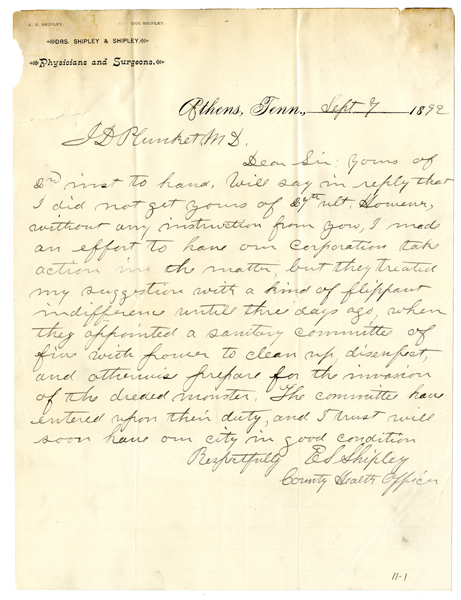 E. S. SHIPLEY. GUS SHIPLEY.
DRS. SHIPLEY & SHIPLEY,
Physicians and Surgeons.
Athens, Tenn., Sept 7 1892
J D Plunket, M D.
Dear Sir; Yours of
2nd inst to hand, Will say in reply that
I did not get yours of 27th ult. However,
without any instruction from you, I made
an effort to have our corporation take
action in the matter, but they treated
my suggestion with a kind of flippant
indifference until three days ago, when
they appointed a sanitary committee of
five with power to clean up, disenfect,
and otherwise prepare for the invasion
of the dreded monster. The committee have
entered upon their duty, and I trust will
soon have our city in good condition
Respectfully E S Shipley
County Health Officer
11-1